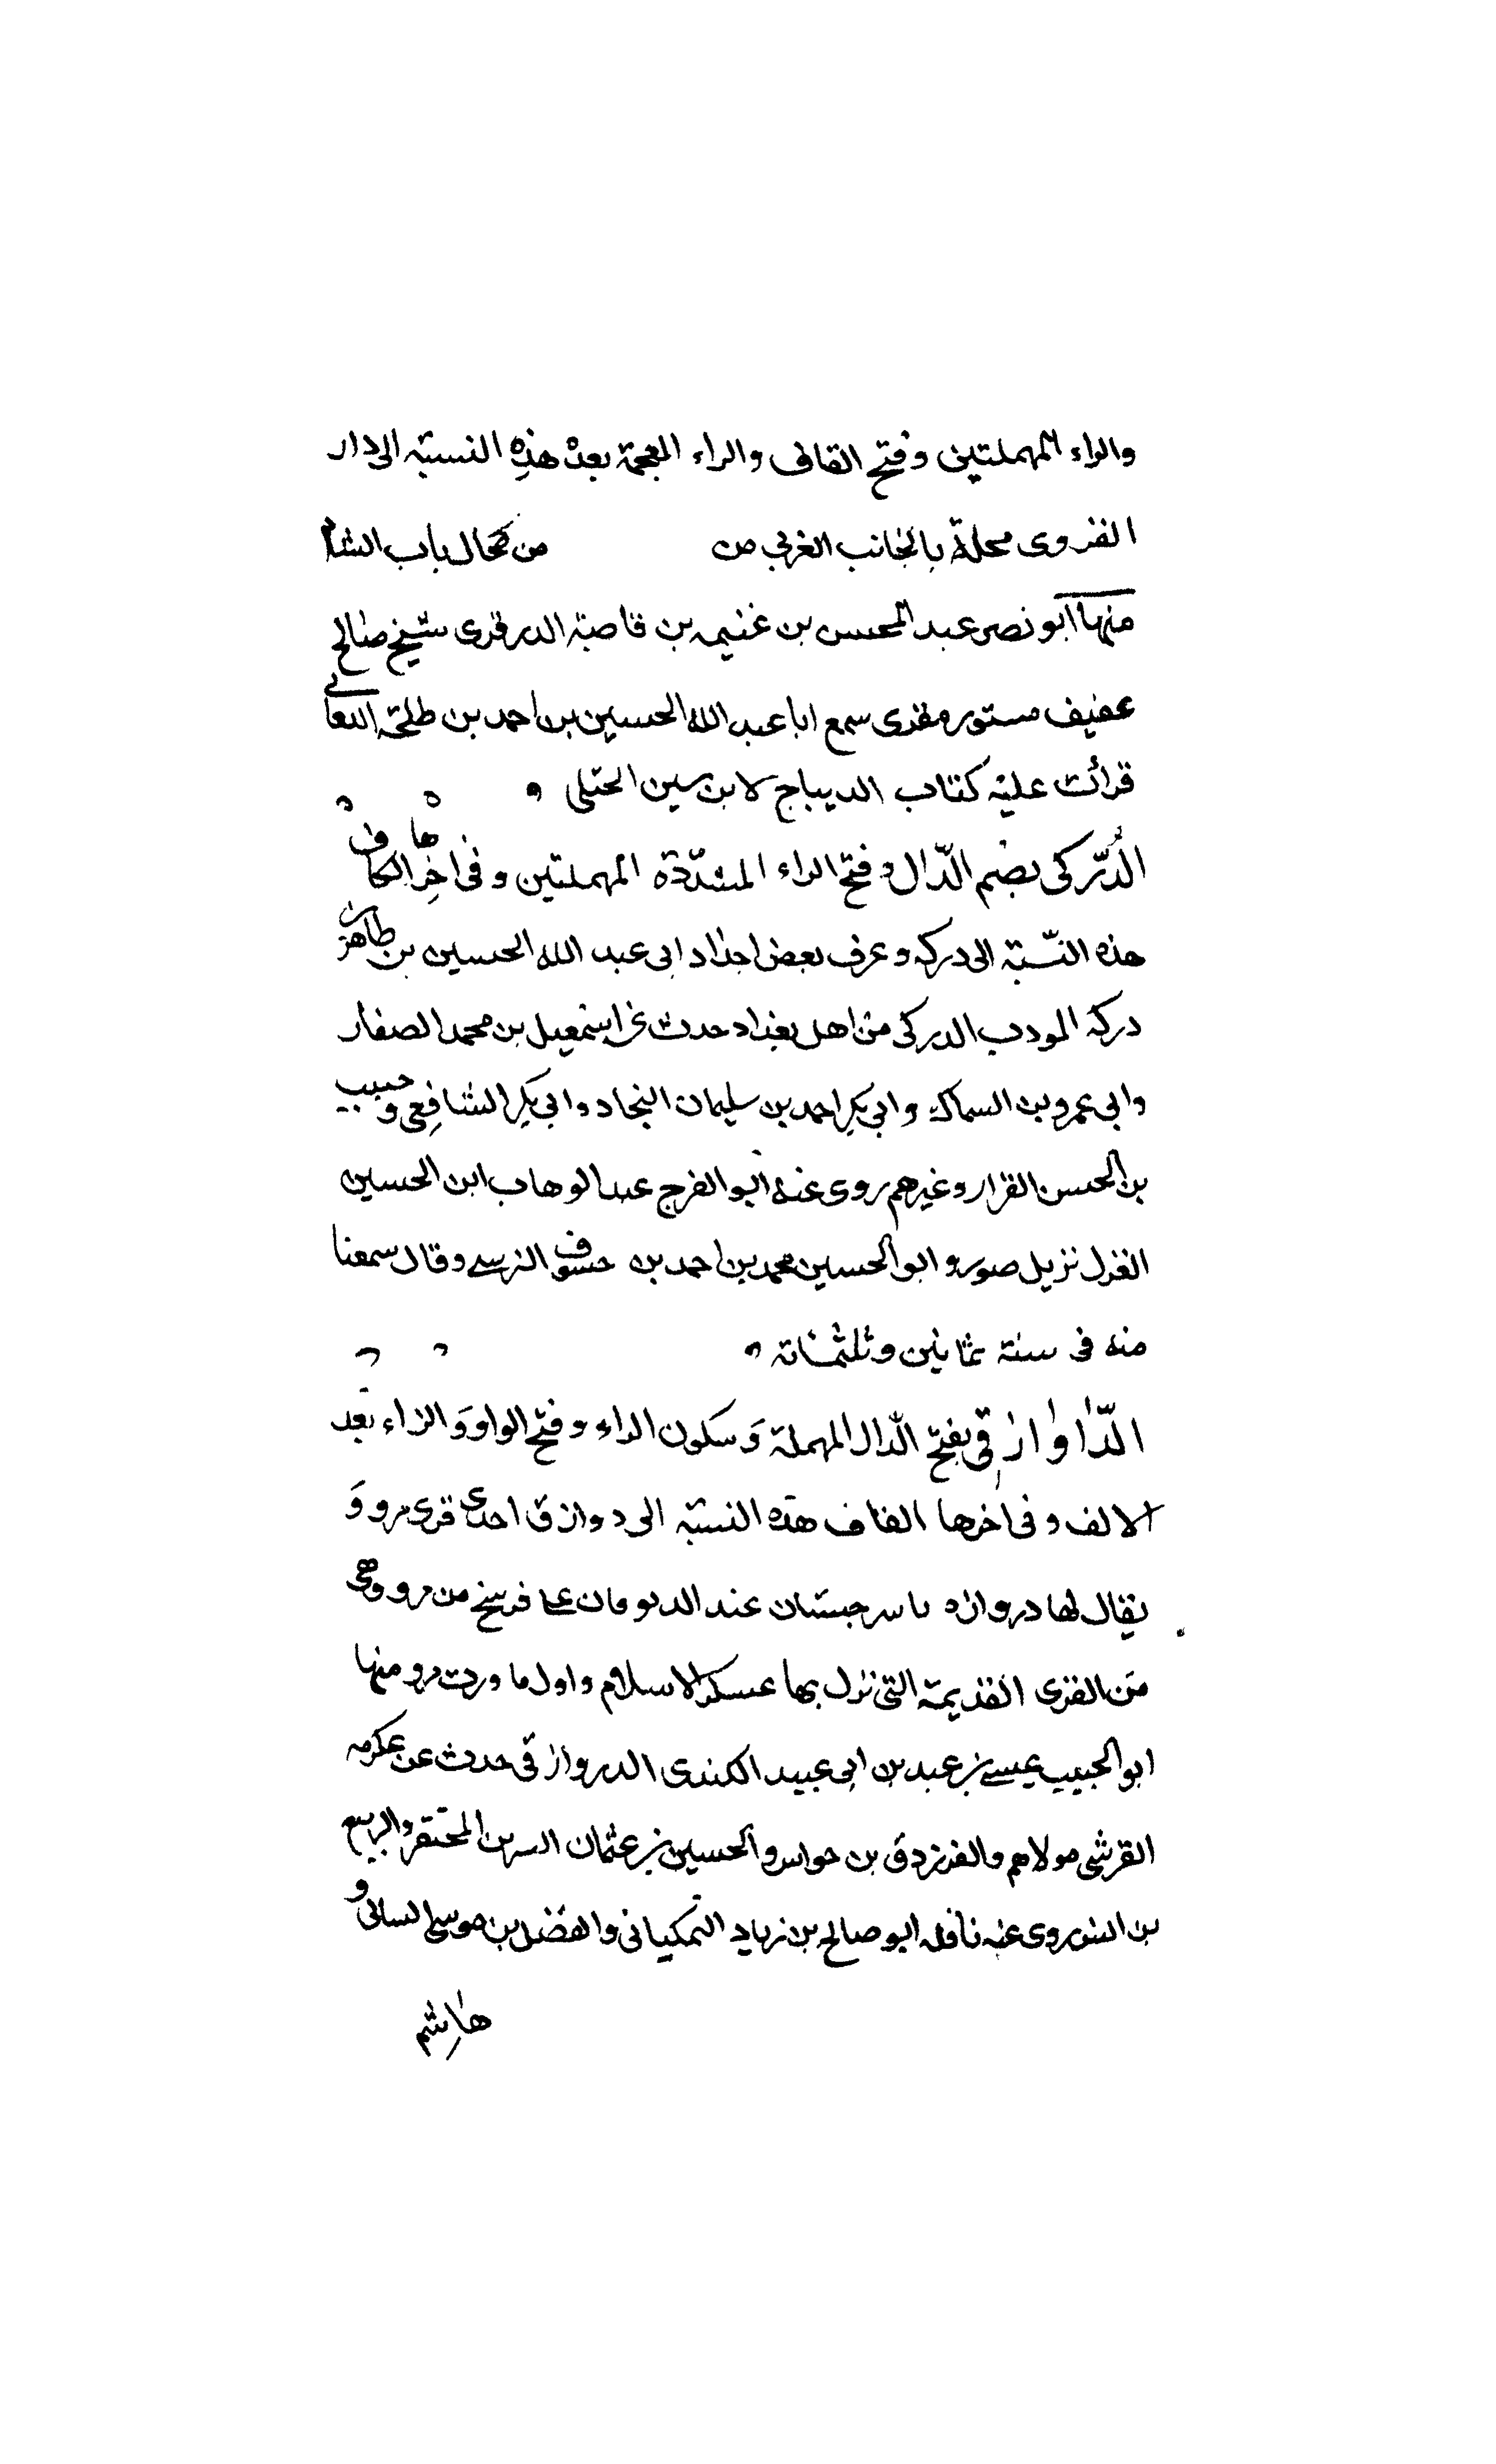 والراء المهملتين وفتح القاف والراء المعجمة بعده هذه النسبة الى دار
القزوى محلة بالجانب الغربي من من محال باب الشام
منها ابو نصر عبد المحسن بن غنيمه بن قاصبة الدرقزى شيخ صالح
عفيف مستور مقرى سمع ابا عبد الله الحسين بن احمد بن طلحة النعالى
قرأت عليه كتاب الديباج لابن سين الختلى
الدُرّكى بضم الدّال وفتح الراء المشدّدة المهملتين وفى اخر الكاف ها
هذه النّسبة الى دركه وعرف بعض اجداد ابى عبد الله الحسين بن طاهر بن
دركة المودب الدركى من اهل بغداد حدث عن اسمعيل بن محمد الصفار
وابى عمرو بن السماك وابى بكر احمد بن سليمان النجاد وابى بكر الشافعى وحبيب
بن الحسن القزار وغيرهم روى عنه ابو الفرج عبد الوهاب ابن الحسين
الغزل نزيل صور وابو الحسين محمد بن احمد بن النرسى وقال سمعنا
منه فى سنة ثمانين وثلثمائة
الدّاوازقى بفتح الدّال المهملة وَسكون الراء وفتح الواو وَالزاء بعد
الالف وفى اخرها القاف هذه النسبة الى دوازق احدى قرى مرو وَ
يقال لها دروازه عند الديوقان على فرسخ من مرو وهى
من القرى القديمة التى نزل بها عسكر الاسلام واول ما وردت مرو منها
ابو الحبيب عيسى بن عبد بن ابى عبيد الكندى الدروازقى حدث عن عكرمه
القرشى مولاهم والفرزدق بن جواس والحسين بن عثمان المحتقر والربيع
بن روى عنه ابو صالح بن زياد والفضل بن موسى و
هاشم